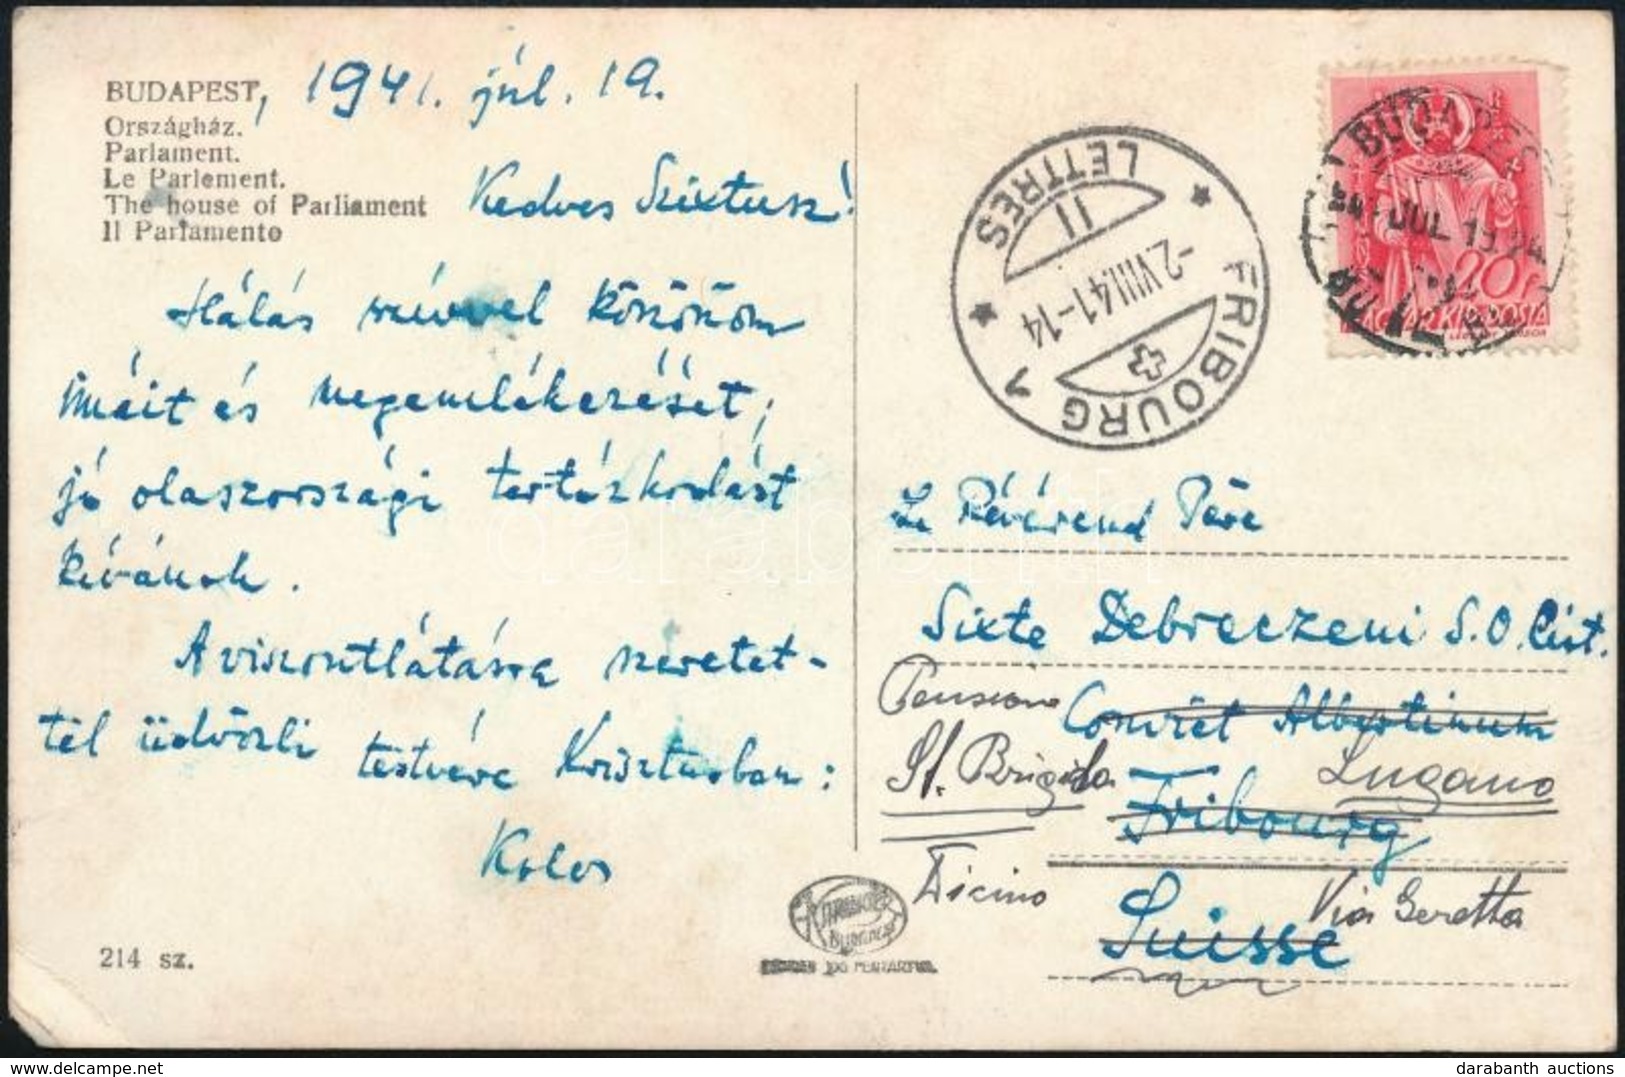 BUDAPEST, 1941. júl. 19.
Országház.
Parlament.
Le Parlement.
The house of Parliament
Il Parlamento
Kedves Szixtusz!
Hálás szívvel köszönöm
imáit és megemlékezését;
jó olaszországi tartózkodást
kívánok.
A viszontlátásra szeretet-
tel üdvözli testvére Krisztusban:
Kolos
214 sz.
BUDAPEST
JUL 19.24
20f
MAGYAR KIR. POSTA
FRIBOURG 1
LETTRES
II
-2.VIII.41-14
Le Révérend Père
Sixte Debreczeni S.O.Cist.
Convict Albertinum
Fribourg
Suisse
Pension
St. Brigida
Lugano
Ticino
Via Geretta
BUDAPEST
darabanth
darabanth auctions
www.delcampe.net